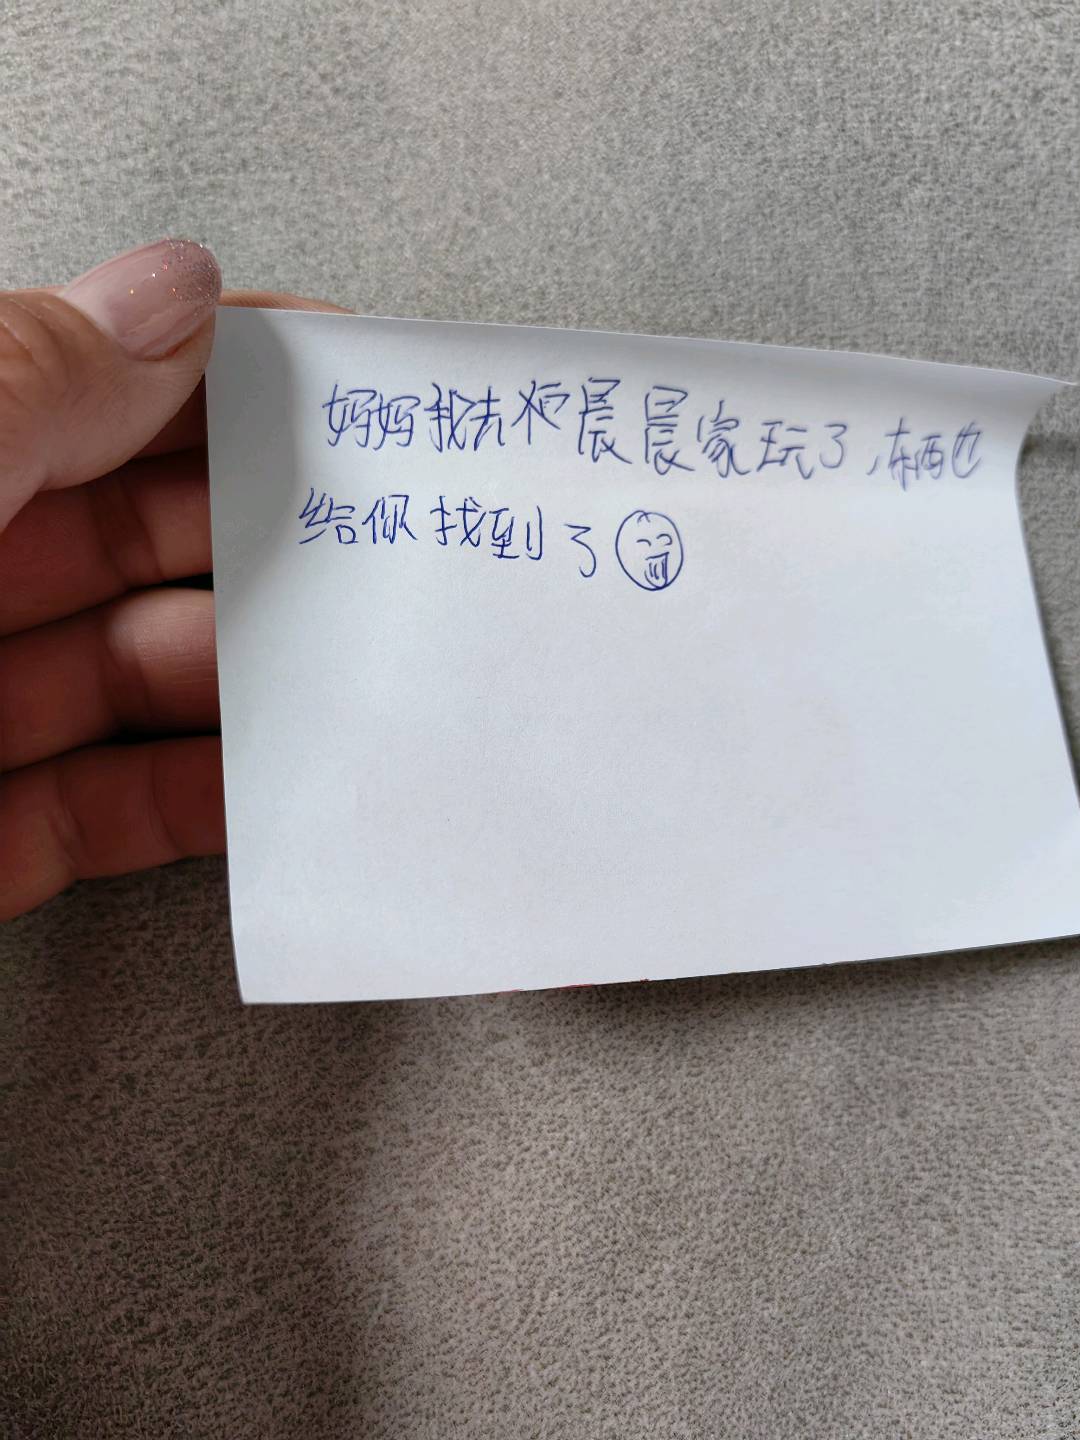 妈妈我去晨晨家玩了,东西也
给你找到了